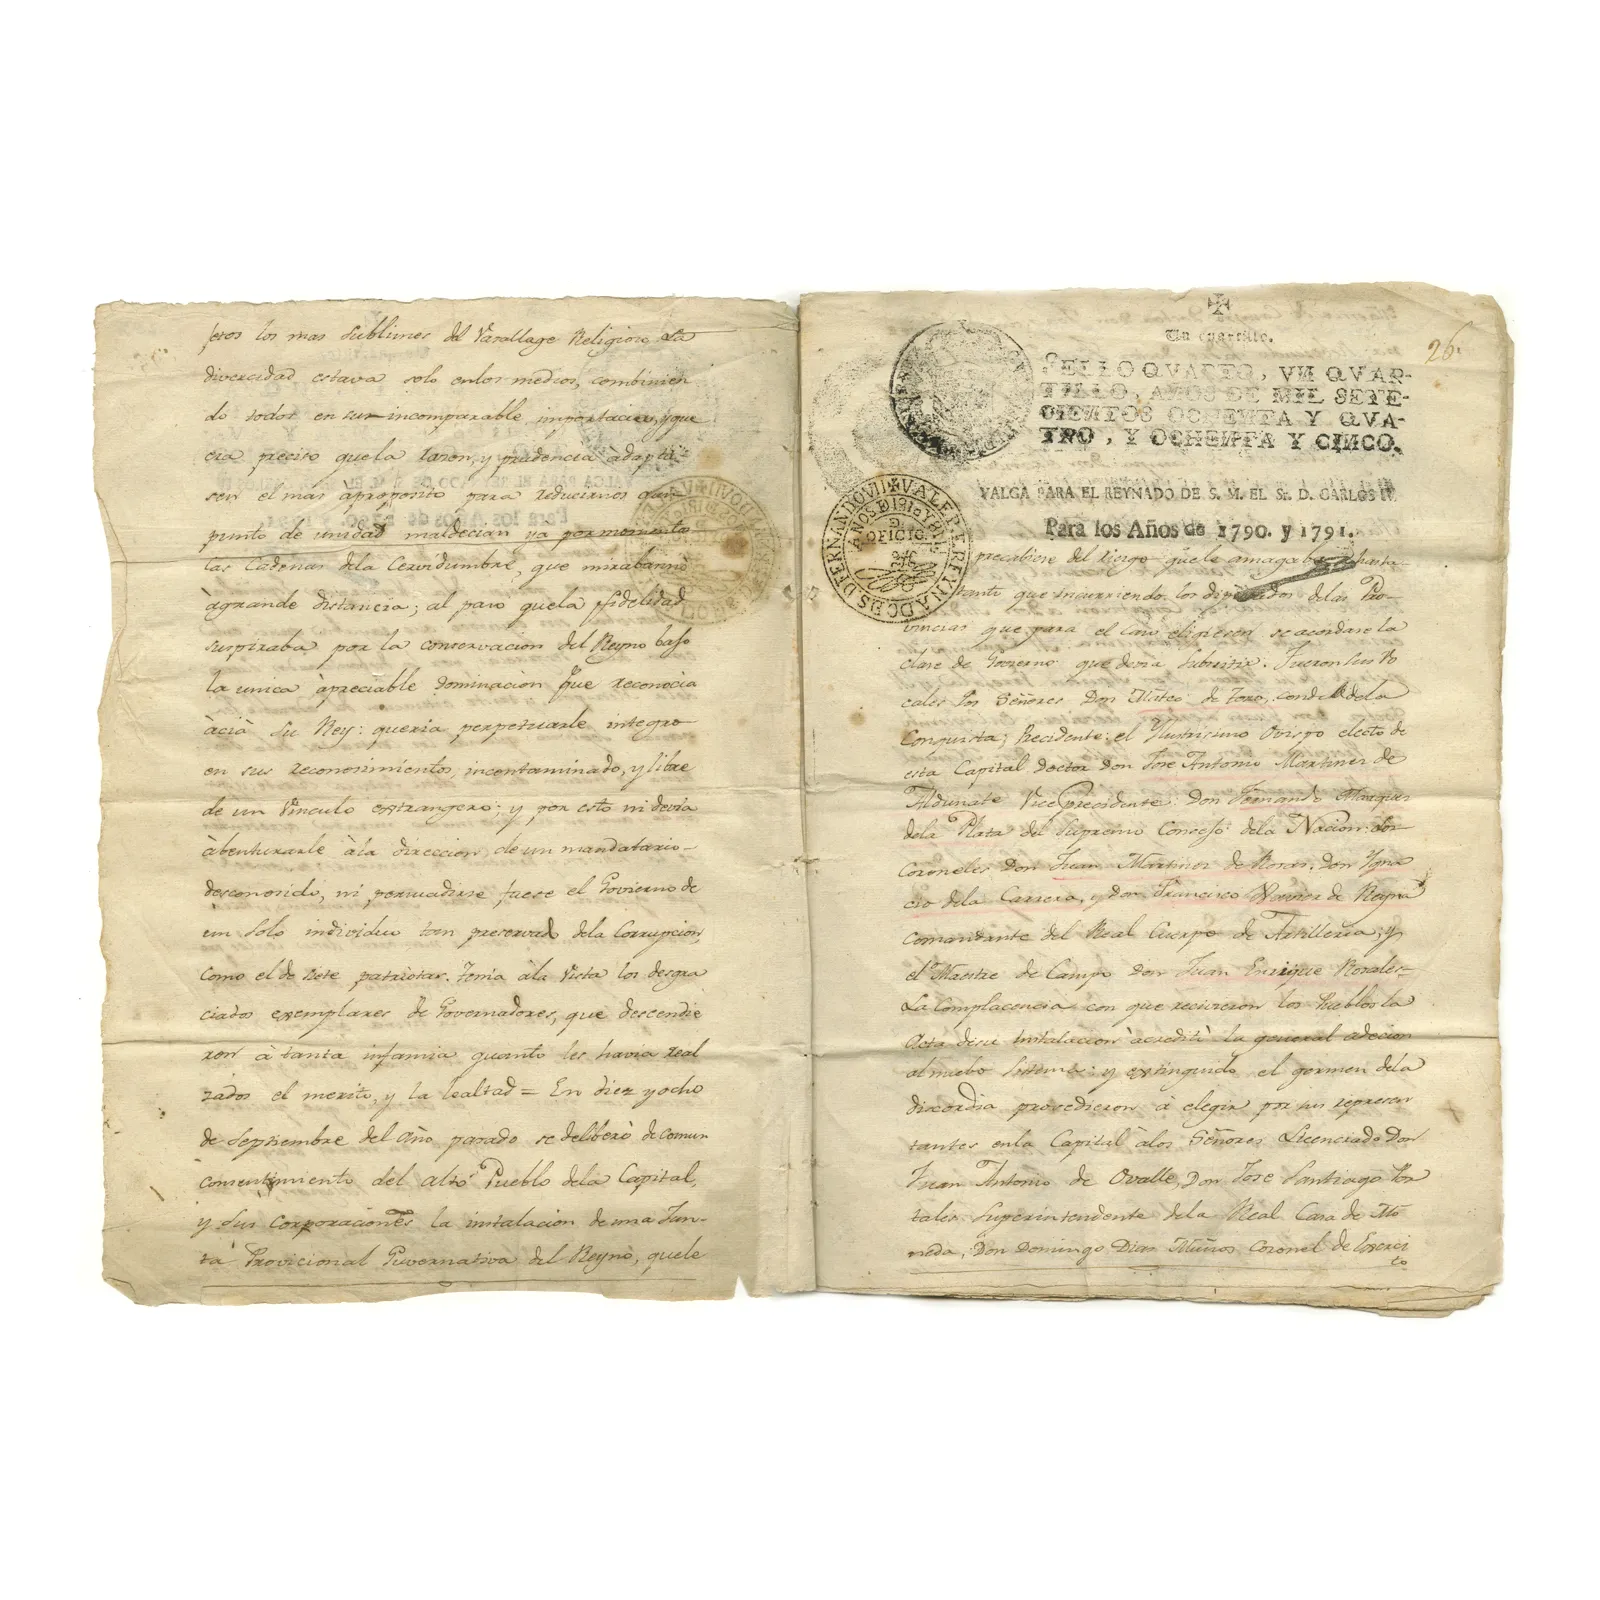 jetos los mas sublimes del Vasallage Religioso La
divercidad estava solo enlos medios, combinien
do todos en su incomparable importacia, y que
cia preciso quela razon, y prudencia àdapta
sen el mas àproposito para reducirnos àun
punto de unidad maldecian ya por momento
las Cadenas dela Cervidumbre, que mirabamos
àgrande distancia; al paso quela fidelidad
suspiraba por la conservacion del Reyno bajo
la unica àpreciable Dominacion que reconocia
àcià su Rey: queria perpetuarle integro
en sus reconosimientos, incontaminado, y libre
de un Vinculo extrangero; y por esto ni devia
àbenturarle àla direccion de un mandatario
desconosido, ni persuadirse fuese el Govierno de
un solo individuo tan preservad dela Corrupcion,
como el de siete patriotas. Tenia àla Vista los desgra
ciados exemplares de Governadores, que descendie
ron à tanta infamia quanto les havia real
zados el merito, y la lealtad = En diez y ocho
de Septiembre del año pasado se deliberò de comun
consentimiento del alto Pueblo dela Capital,
y sus Corporaciones la instalacion de una Jun-
ta Provicional Guvernativa del Reyno, quele
Un quartillo.
26.
SELLO QVARTO, VN QVAR-
TILLO, AÑOS DE MIL SETE-
CIENTOS OCHENTA Y QVA-
TRO, Y OCHENTA Y CINCO.
VALGA PARA EL REYNADO DE S. M. EL Sr. D. CARLOS IV.
Para los Años de 1790. y 1791.
VALE P. EL REYNADO DE S. D. FERNANDO VII
AÑOS D 1810 Y
OFICIO
precabiese del riesgo quele amagaba hasta
tanto que incurriendo los dipùtados delas Pro-
vincias que para el caso eligiesen se acordase la
clase de Govierno que devia subsistir. Fueron sus Vo
cales los Señores Don Mateo de Toro, conde dela
Conquista; Precidente: el Ylustrisimo Ovispo electo de
esta Capital doctor don Jose Antonio Martines de
Aldunate Vice precidente: Don Fernando Marques
dela Plata del Supremo Consejo dela Nacion: los
Coroneles Don Juan Martines de Rosas, Don Ygna
cio dela Carrera, y don Francisco Xavier de Reyna
Comandante del Real Cuerpo de Artilleria; y
el Maestre de Campo don Juan Enrique Rosales=
La Complacencia con que recivieron los Pueblos la
Acta desu instalacion àcreditò la general adecion
al nuebo Sistema: y extinguido el germen dela
discordia procedieron à elegir por sus represen
tantes enla Capital àlos Señores Licenciado Don
Juan Antonio de Ovalle, Don Jose Santiago Por
tales Superintendente dela Real Casa de Mo
neda, Don Domingo Dias Muños Coronel de Exerci
to